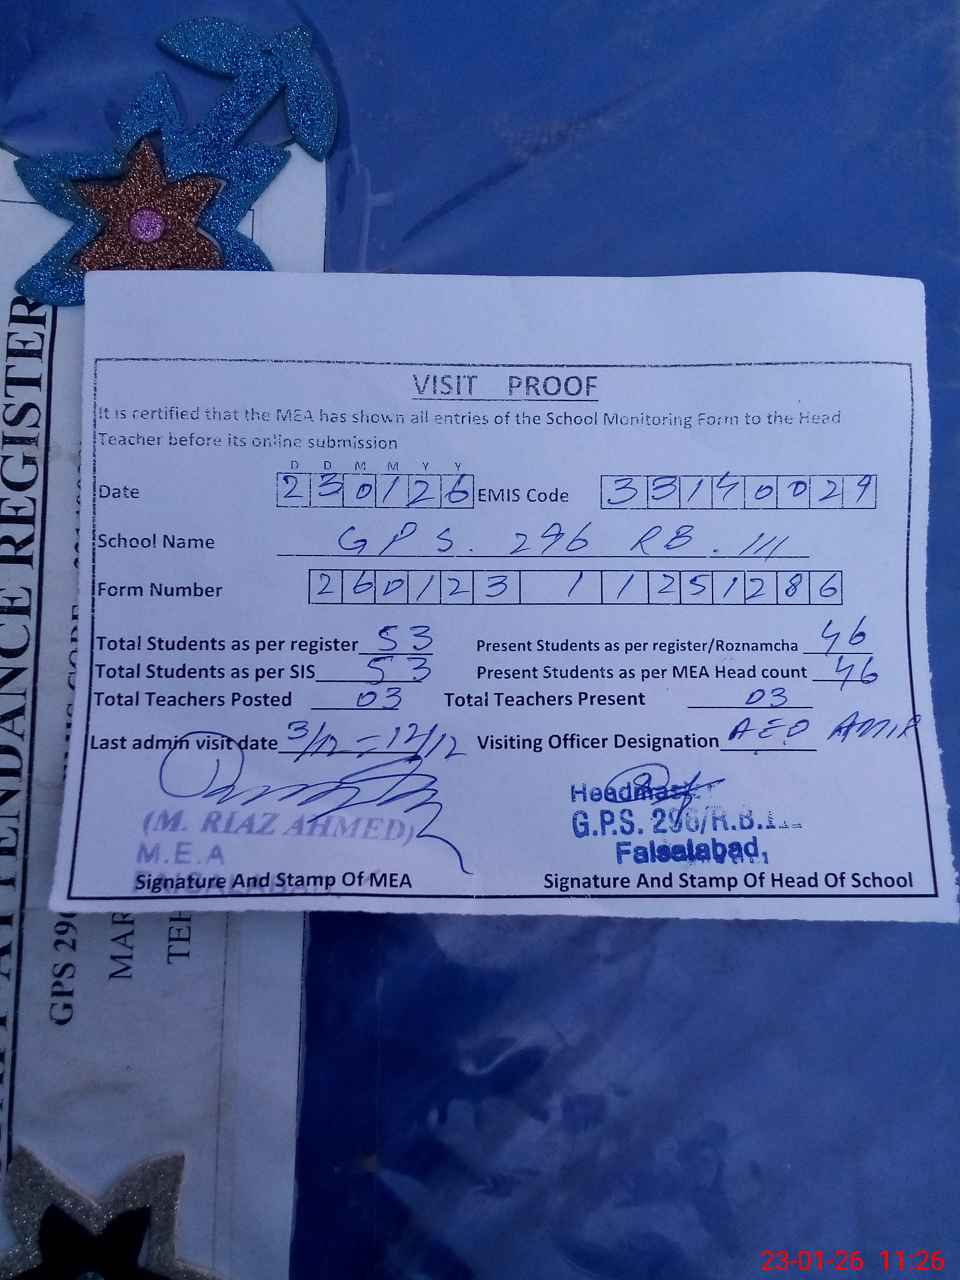 VISIT PROOF
It is certified that the MEA has shown all entries of the School Monitoring Form to the Head
Teacher before its online submission
D D M M Y Y
Date 230126 EMIS Code 33140029
School Name GPS. 296 RB. III
Form Number 260123 1 1251286
Total Students as per register 53 Present Students as per register/Roznamcha 46
Total Students as per SIS 53 Present Students as per MEA Head count 46
Total Teachers Posted 03 Total Teachers Present 03
Last admin visit date 3/12 = 12/12 Visiting Officer Designation AEO AMIR
(M. RIAZ AHMED)
M.E.A
FAISALABAD
Signature And Stamp Of MEA
G.P.S. 296/R.B.
Faisalabad
Signature And Stamp Of Head Of School
ATTENDANCE REGISTER
GPS 296
MAR
TEH
23-01-26 11:26